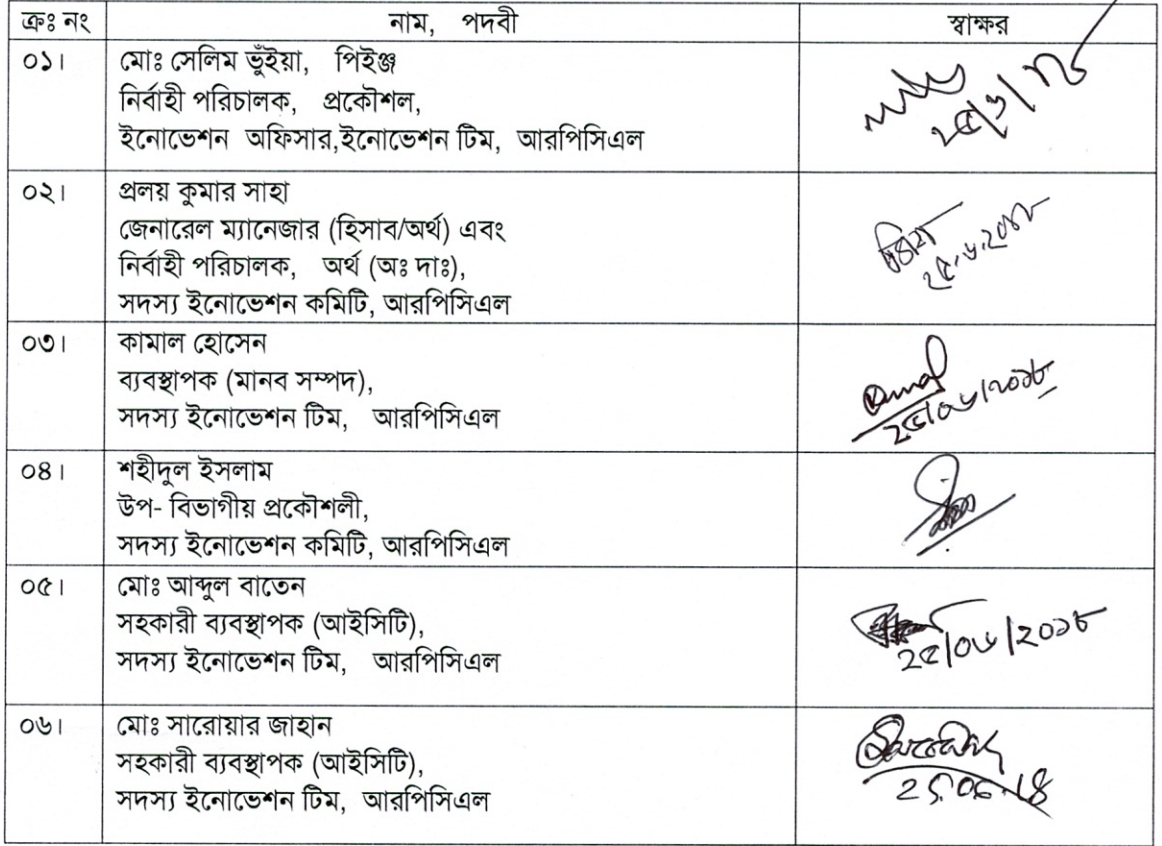 ক্রঃ নং নাম, পদবী স্বাক্ষর
০১। মোঃ সেলিম ভুঁইয়া, পিইঞ্জ
নির্বাহী পরিচালক, প্রকৌশল,
ইনোভেশন অফিসার,ইনোভেশন টিম, আরপিসিএল
২৫/৬/১৮
০২। প্রলয় কুমার সাহা
জেনারেল ম্যানেজার (হিসাব/অর্থ) এবং
নির্বাহী পরিচালক, অর্থ (অঃ দাঃ),
সদস্য ইনোভেশন কমিটি, আরপিসিএল
২৫.৬.২০১৮
০৩। কামাল হোসেন
ব্যবস্থাপক (মানব সম্পদ),
সদস্য ইনোভেশন টিম, আরপিসিএল
২৫/০৬/২০১৮
০৪। শহীদুল ইসলাম
উপ- বিভাগীয় প্রকৌশলী,
সদস্য ইনোভেশন কমিটি, আরপিসিএল
০৫। মোঃ আব্দুল বাতেন
সহকারী ব্যবস্থাপক (আইসিটি),
সদস্য ইনোভেশন টিম, আরপিসিএল
২৫/০৬/২০১৮
০৬। মোঃ সারোয়ার জাহান
সহকারী ব্যবস্থাপক (আইসিটি),
সদস্য ইনোভেশন টিম, আরপিসিএল
25.06.18